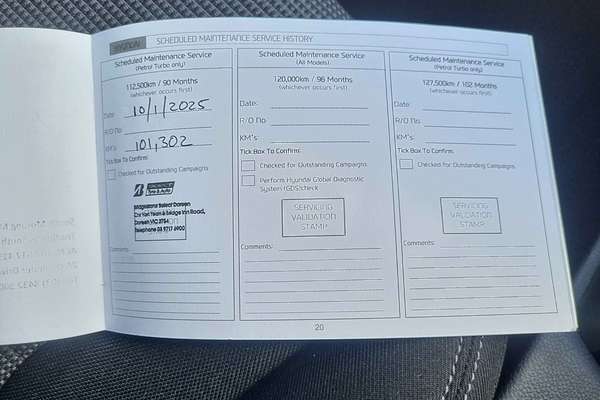 HYUNDAI SCHEDULED MAINTENANCE SERVICE HISTORY
Scheduled Maintenance Service
(Petrol Turbo only)
112,500km / 90 Months
(whichever occurs first)
Date: 10/1/2025
R/O No
KM's: 101,302
Tick Box To Confirm:
Checked for Outstanding Campaigns
Tyre & Auto
Bridgestone Select Doreen
Cnr Yan Yean & Bridge Inn Road,
Doreen VIC 3754
Telephone 03 9717 6900
Comments:
Scheduled Maintenance Service
(All Models)
120,000km / 96 Months
(whichever occurs first)
Date:
R/O No
KM's:
Tick Box To Confirm:
Checked for Outstanding Campaigns
Perform Hyundai Global Diagnostic
System (GDS) check
SERVICING
VALIDATION
STAMP
Comments:
Scheduled Maintenance Service
(Petrol Turbo only)
127,500km / 102 Months
(whichever occurs first)
Date:
R/O No
KM's:
Tick Box To Confirm:
Checked for Outstanding Campaigns
SERVICING
VALIDATION
STAMP
Comments:
20